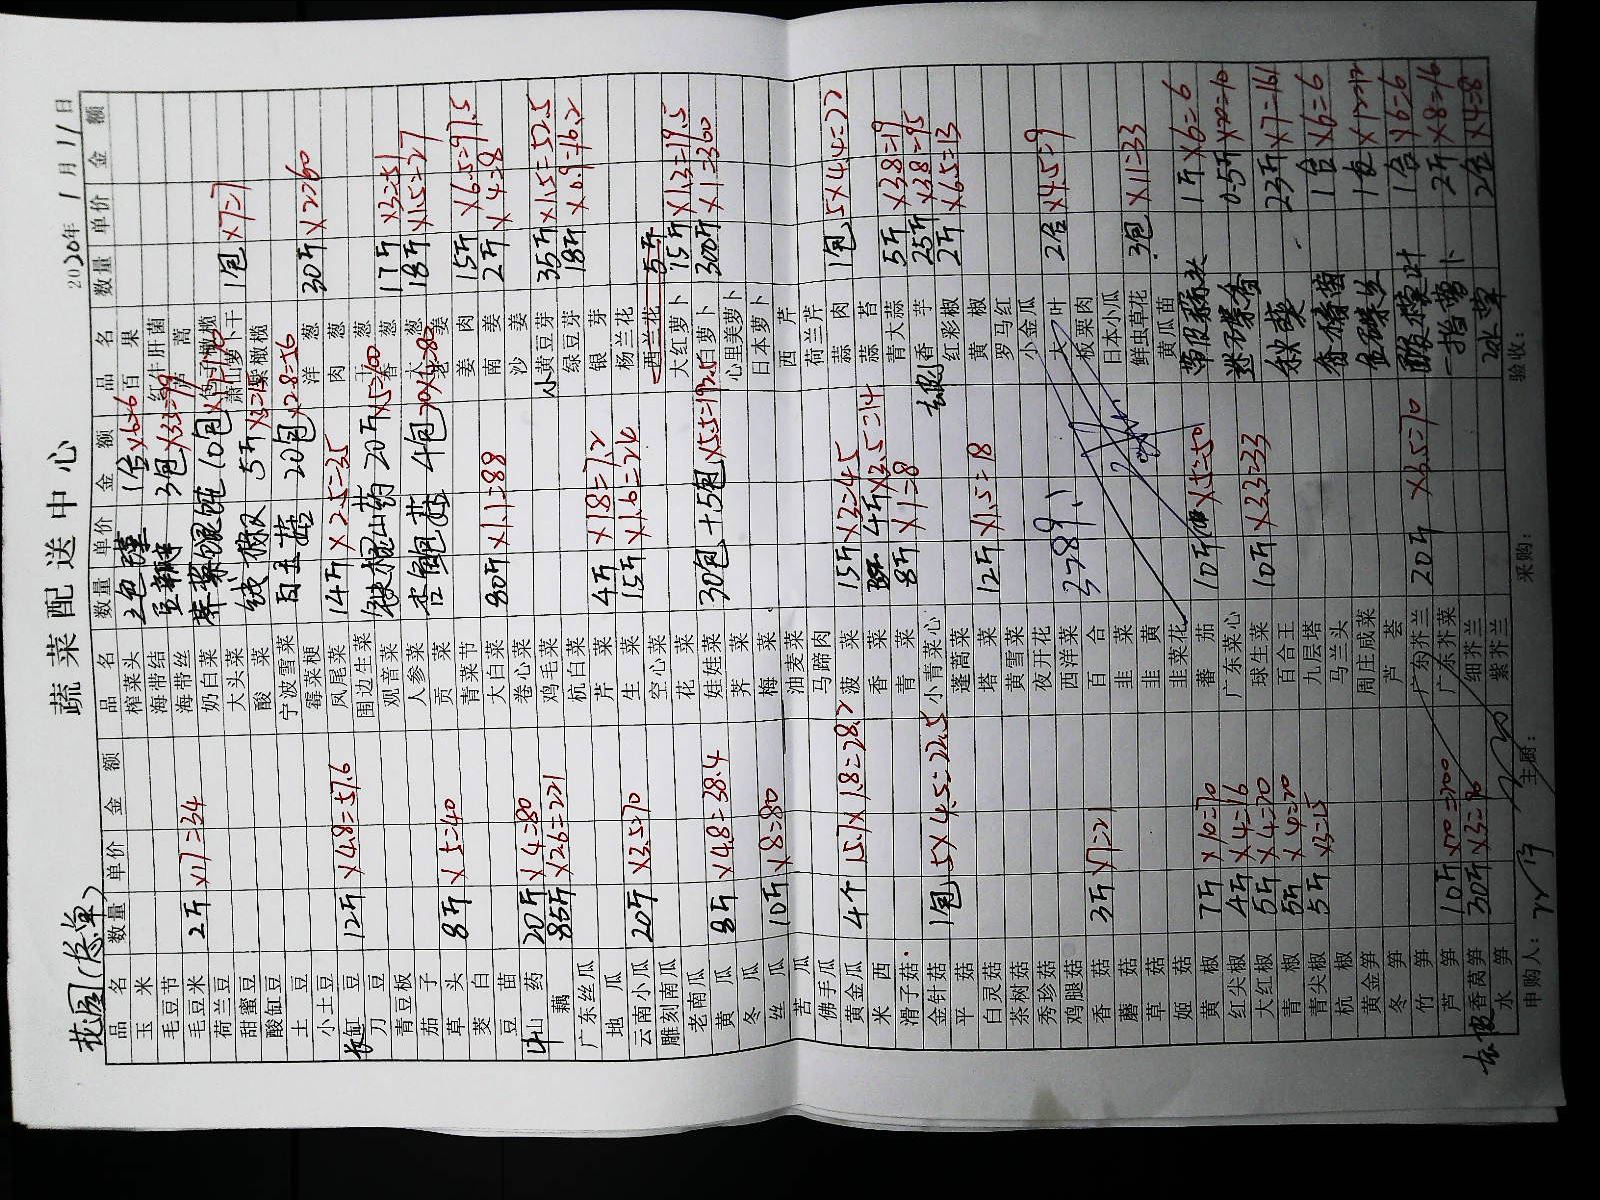 蔬菜配送中心
桃园(总单)
2020年 1月11日
品名 数量 单价 金额 品名 数量 单价 金额 品名 数量 单价 金额
玉米 榨菜头 百果
毛豆节 海带结 红牛肝菌
毛豆米 2斤×17=34 海带丝 蒿
荷兰豆 奶白菜
甜蜜豆 大头菜 萧山萝卜干 1包×7=7
酸缸豆 酸菜 紫橄榄
土豆 宁波雪菜
小土豆 霉菜梗 洋葱 30斤×2=60
长缸豆 12斤×4.8=57.6 凤尾菜 14斤×2.5=35 肉葱
刀豆 围边生菜
青豆板 观音菜 香葱 17斤×3=51
茄子 人参菜 大葱 18斤×1.5=27
草头 8斤×5=40 贡菜 老姜
菱白 青菜节 姜肉 15斤×6.5=97.5
豆苗 大白菜 80斤×1.1=88 南姜 2斤×4=8
牛山药 20斤×4=80 卷心菜 沙姜
藕 85斤×2.6=221 鸡毛菜 小黄豆芽 35斤×1.5=52.5
广东丝瓜 杭白菜 绿豆芽 18斤×0.9=16.2
地瓜 芹菜 4斤×1.8=7.2 银芽
云南小瓜 20斤×3.5=70 生菜 15斤×1.6=24 杨兰花
雕刻南瓜 空心菜 西兰花 5斤
老南瓜 花菜 大红萝卜 15斤×1.3=19.5
黄瓜 8斤×4.8=38.4 娃娃菜 30包+5包×5.5=192.5 白萝卜 300斤×1.=360
冬瓜 荠菜 心里美萝卜
丝瓜 10斤×8=80 梅菜 日本萝卜
苦瓜 油麦菜 西芹
佛手瓜 马蹄肉 荷兰芹
黄金瓜 4个 15.7×1.8=28.2 菠菜 15斤×3=45 蒜肉 1包 5×4.4=22
米西 香菜 4斤×3.5=14 蒜苔
滑子菇 青菜 8斤×1=8 青大蒜 5斤×3.8=19
金针菇 1包 5×4.5=22.5 小青菜心 香芋 25斤×3.8=95
平菇 蓬蒿菜 红彩椒 2斤×6.5=13
白灵菇 塔菜 12斤×1.5=18 黄椒
茶树菇 黄雪菜 罗马红
秀珍菇 夜开花 小金瓜
鸡腿菇 西洋菜 3789.1 大叶 2合×4.5=9
香菇 3斤×7=21 百合 板栗肉
蘑菇 韭菜 日本小瓜
草菇 韭黄 鲜虫草花 3包×11=33
姬菇 韭菜花 黄瓜苗
黄椒 7斤×10=70 蕃茄 10斤×5=50 1斤×6=6
红尖椒 4斤×4=16 广东菜心 迷迭香 0.5斤×20=10
大红椒 5斤×4=20 球生菜 10斤×3.3=33 秋葵 23斤×7=161
青椒 5斤×4=20 百合王 1合×6=6
青尖椒 5斤×3=15 九层塔 1包×12=12
杭椒 马兰头 1合×6=6
黄金笋 周庄咸菜 一指萝卜 2斤×8=16
冬笋 芦荟 冰草 2合×4=8
竹笋 广东芥兰 20斤×3.5=70
芦笋 10斤×20=200 广东芥菜
去皮香莴笋 30斤×3=90 细芥兰
水笋 紫芥兰
五色堇 1合×6=6
豆瓣 3包×33=99
荠菜馄饨 10包
线椒 5斤×3=15
白玉菇 20包×2.8=56
铁棍山药 20斤×5=100
杏鲍菇 4包
申购人: 主厨: 采购: 验收: